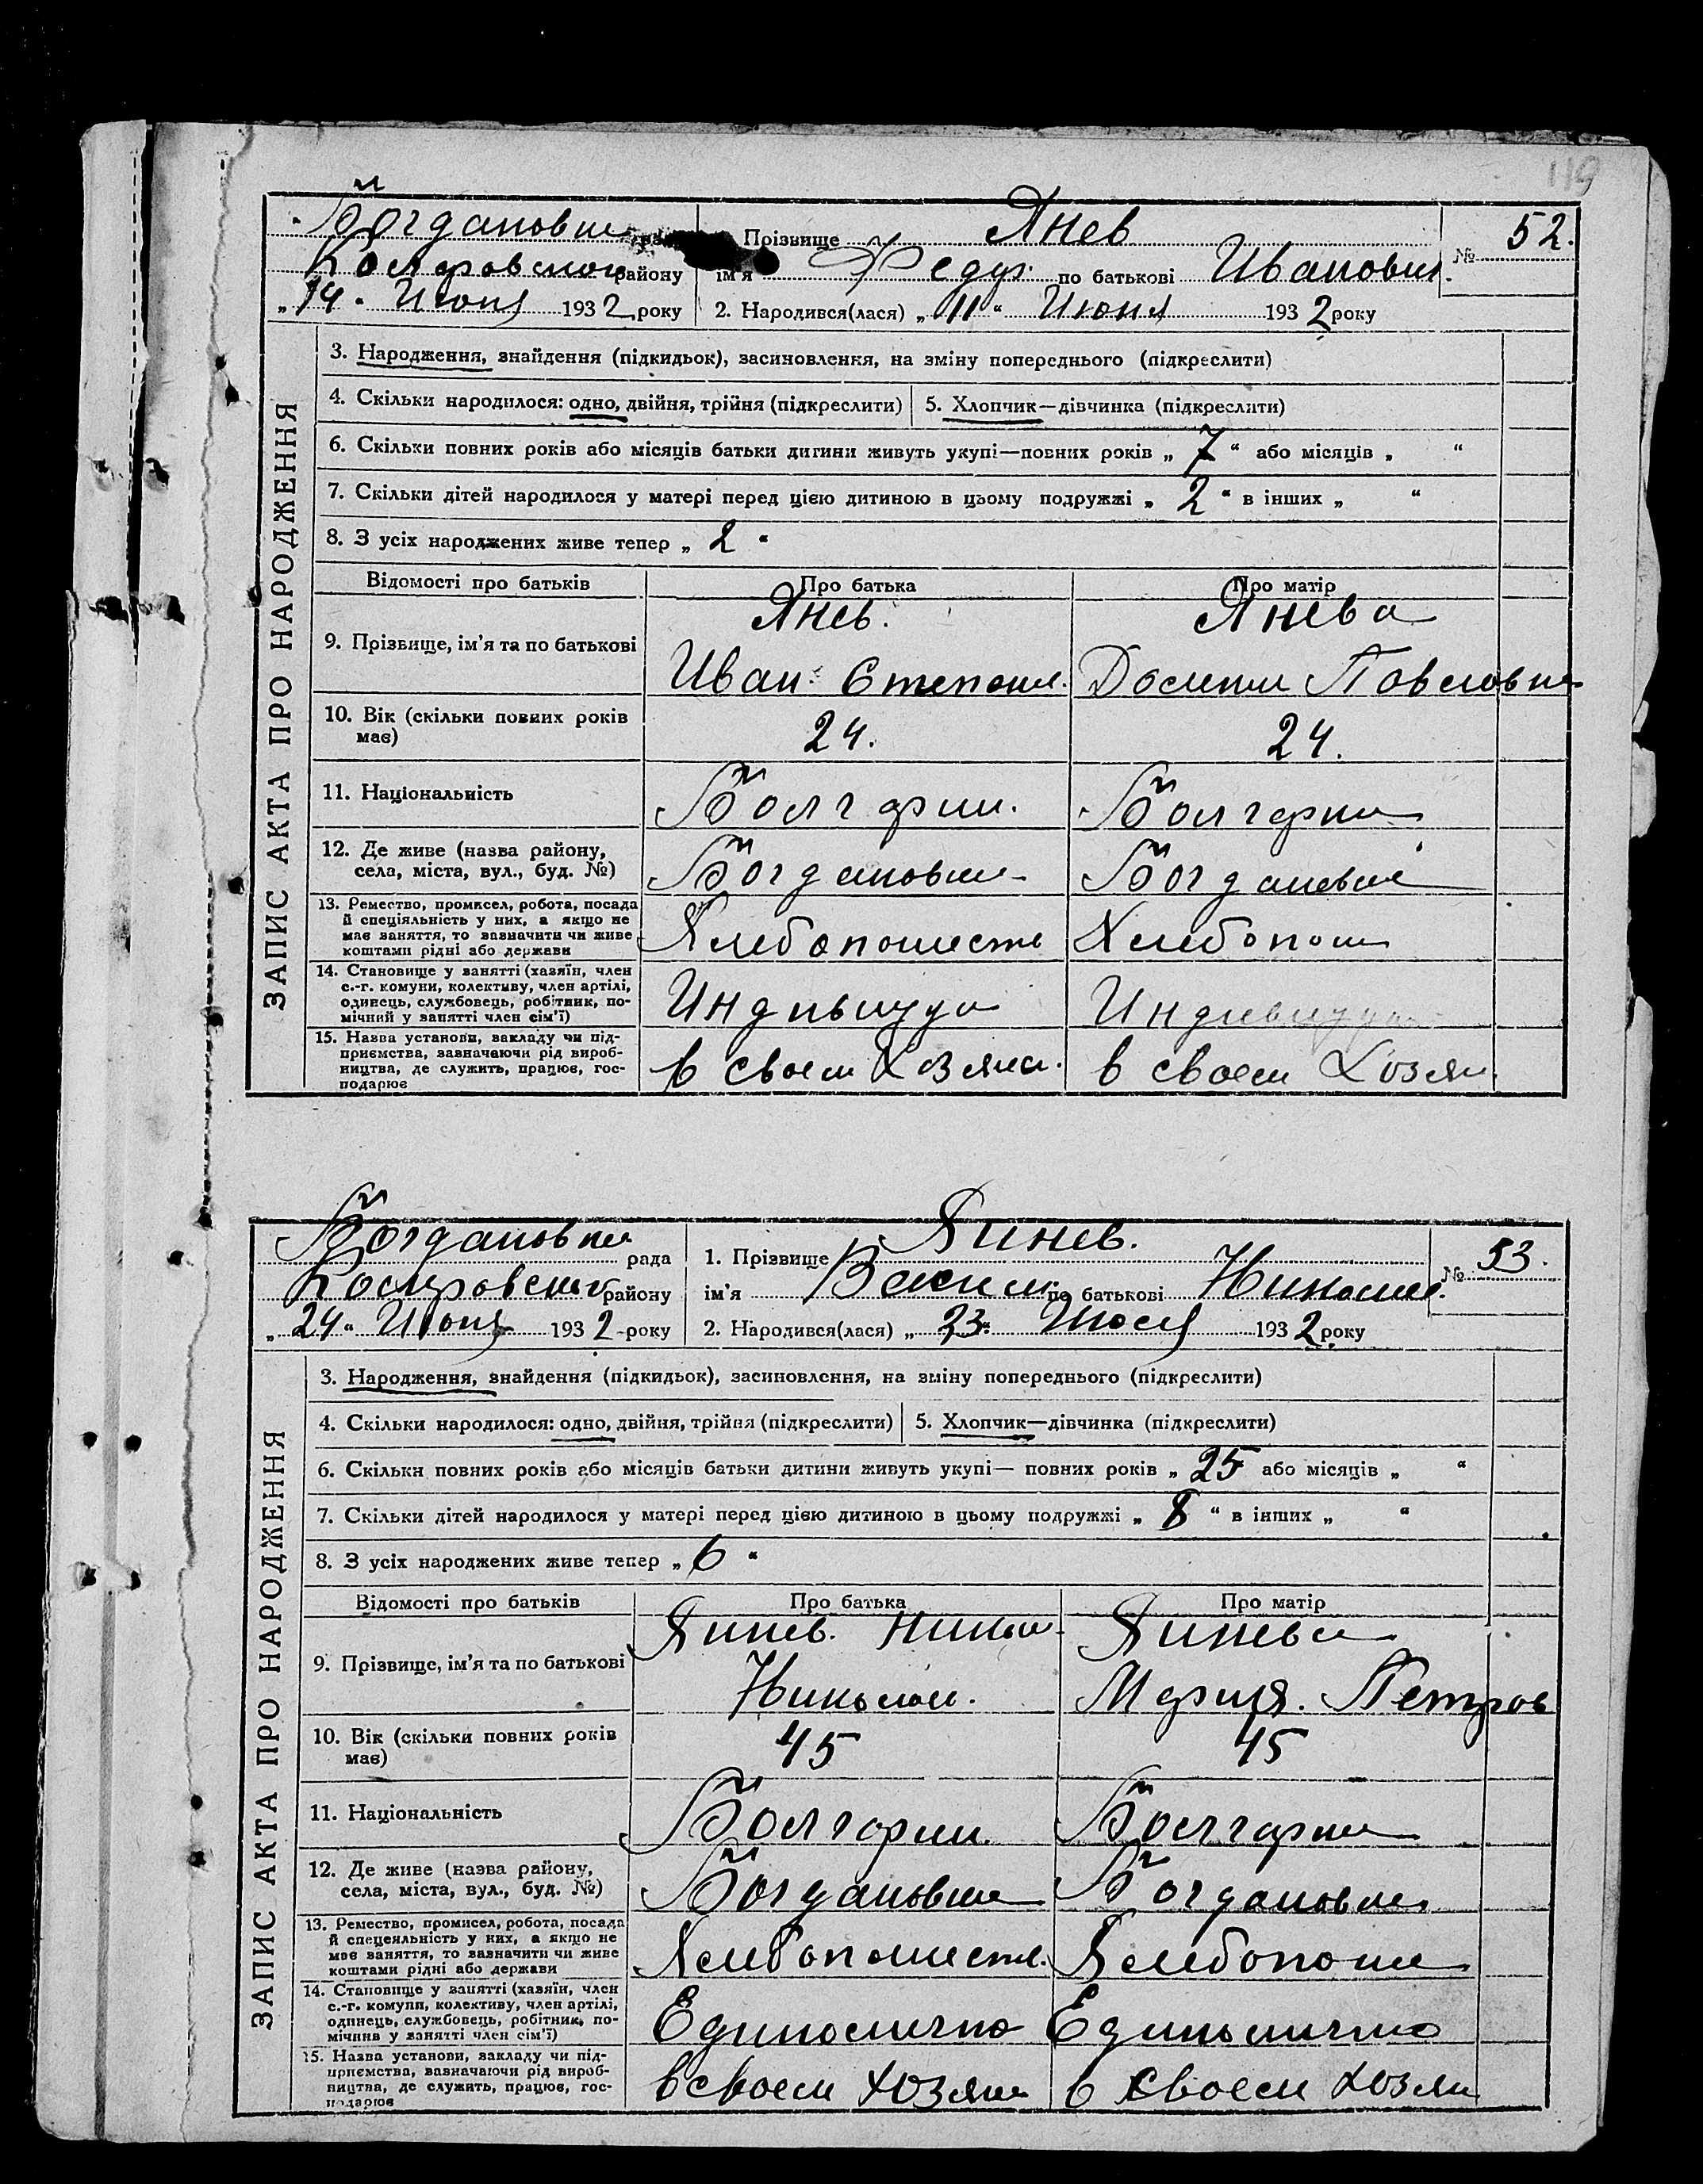 119
Богдановки рада
района Коларовской району
"14" Июня 1932 року
Прізвище Янев
ім'я Федор по батькові Иванович.
№ 52.
2. Народився(лася) „11“ Июня 1932 року
ЗАПИС АКТА ПРО НАРОДЖЕННЯ
3. Народження, знайдення (підкидьок), засиновлення, на зміну попереднього (підкреслити)
4. Скільки народилося: одно, двійня, трійня (підкреслити)
5. Хлопчик—дівчинка (підкреслити)
6. Скільки повних років або місяців батьки дитини живуть укупі—повних років „7“ або місяців „ “
7. Скільки дітей народилося у матері перед цією дитиною в цьому подружжі „2“ в інших „ “
8. З усіх народжених живе тепер „2“
Відомості про батьків
Про батька
Про матір
9. Прізвище, ім'я та по батькові
Янев.
Иван Степан.
Янева
Павловна
10. Вік (скільки повних років
має)
24.
24.
11. Національність
Болгарин.
Болгарка
12. Де живе (назва району,
села, міста, вул., буд. №)
Богдановка
Богдановка
13. Ремество, промисел, робота, посада
й спеціяльність у них, а якщо не
має заняття, то зазначити чи живе
коштами рідні або держави
Хлебопашест
Хлебопаш
14. Становище у занятті (хазяїн, член
с.-г. комуни, колективу, член артілі,
одинець, службовець, робітник, по-
мічний у занятті член сім'ї)
Индивидуа
Индивидуа
15. Назва установи, закладу чи під-
приємства, зазначаючи рід вироб-
ництва, де служить, працює, гос-
подарює
в своем хозяй.
в своем хозяй.
Богдановки рада
Коларовской району
„24“ Июня 1932 року
1. Прізвище Янев.
ім'я Васил по батькові Никола.
№ 53.
2. Народився(лася) „23“ 1932 року
ЗАПИС АКТА ПРО НАРОДЖЕННЯ
3. Народження, знайдення (підкидьок), засиновлення, на зміну попереднього (підкреслити)
4. Скільки народилося: одно, двійня, трійня (підкреслити)
5. Хлопчик—дівчинка (підкреслити)
6. Скільки повних років або місяців батьки дитини живуть укупі— повних років „25 або місяців „ “
7. Скільки дітей народилося у матері перед цією дитиною в цьому подружжі „8“ в інших „ “
8. З усіх народжених живе тепер „6“
Відомості про батьків
Про батька
Про матір
9. Прізвище, ім'я та по батькові
Янев. Никол
Николай.
Янева
Мария. Петров
10. Вік (скільки повних років
має)
45
45
11. Національність
Болгарин.
Болгарка
12. Де живе (назва району,
села, міста, вул., буд. №)
Богдановка
Богдановка
13. Ремество, промисел, робота, посада
й спецеяльність у них, а якщо не
має заняття, то зазначити чи живе
коштами рідні або держави
Хлебопашест.
Хлебопаш
14. Становище у занятті (хазяїн, член
с.-г. комуни, колективу, член артілі,
одинець, службовець, робітник, по-
мічний у занятті член сім'ї)
Единолично
Единолично
15. Назва установи, закладу чи під-
приємства, зазначаючи рід вироб-
ництва, де служить, працює, гос-
подарює
в своем хозяй
в своем хозяй